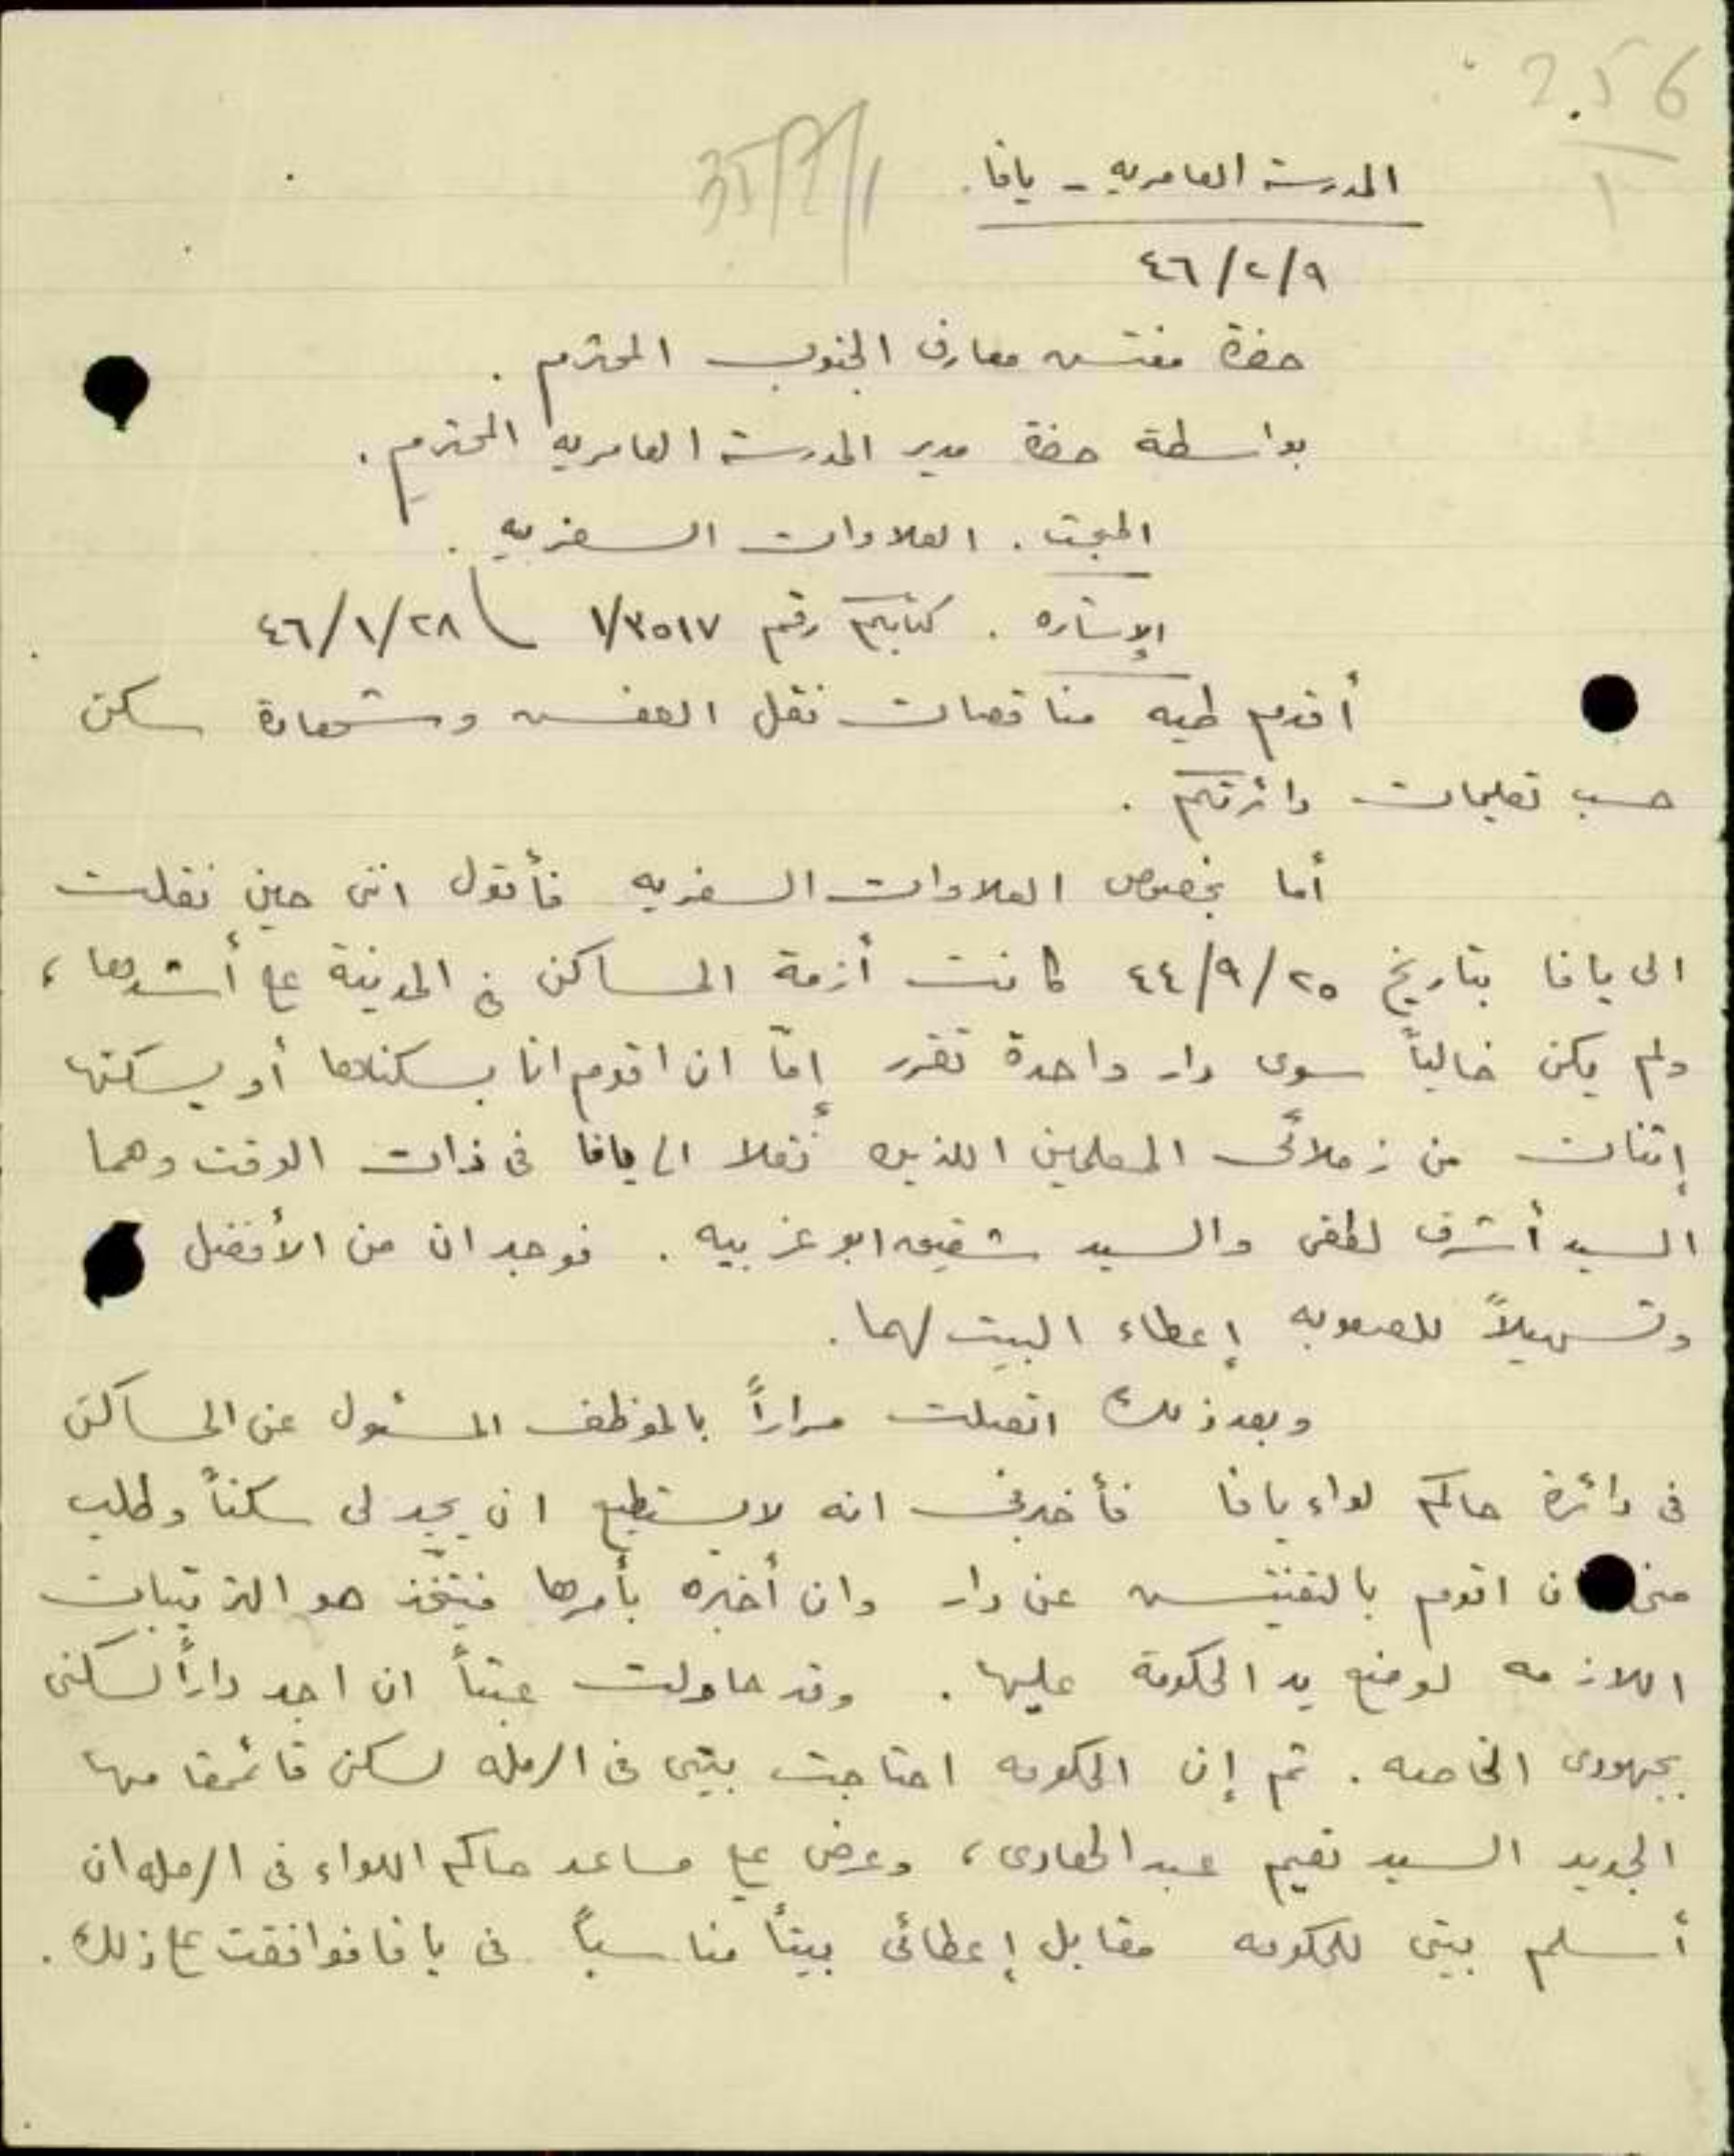 256
1
35/2/1
المدرسة العامريه - يافا.
٤٦/٢/٩
حضرة مفتش معارف الجنوب المحترم.
بواسطة حضرة مدير المدرسة العامريه المحترم.
المبحث. العلاوات السفريه.
الإشاره. كتابكم رقم ١/٣٥١٧ ٤٦/١/٢٨
أقدم طيه مناقصات نقل العفش وشهادة سكن
حسب تعليمات دائرتكم.
أما بخصوص العلاوات السفريه فأقول انني حين نقلت
الى يافا بتاريخ ٤٤/٩/٢٥ كانت أزمة المساكن في المدينة على أشدها،
ولم يكن خالياً سوى دار واحدة تقرر إمّا ان اقوم انا بسكناها أو يسكنها
إثنان من زملائي المعلمين اللذين نُقلا الى يافا في ذات الوقت وهما
السيد أشرف لطفي والسيد شفيق ابو غربيه. فوجد ان من الأفضل
وتسهيلاً للصعوبه إعطاء البيت لهما.
وبعد ذلك اتصلت مراراً بالموظف المسئول عن المساكن
في دائرة حاكم لواء يافا فأخبرني انه لا يستطيع ان يجد لي سكناً وطلب
مني ان اقوم بالتفتيش عن دار وان أخبره بأمرها فيتّخذ هو الترتيبات
اللازمه لوضع يد الحكومة عليها. وقد حاولت عبثاً ان اجد داراً لسكني
بجهودي الخاصه. ثم إن الحكومه احتاجت بيتي في الرمله لسكن قائمقامها
الجديد السيد نعيم عبد الهادي، وعرض علي مساعد حاكم اللواء في الرمله ان
أسلم بيتي للحكومه مقابل إعطائي بيتاً مناسباً في يافا فوافقت على ذلك.